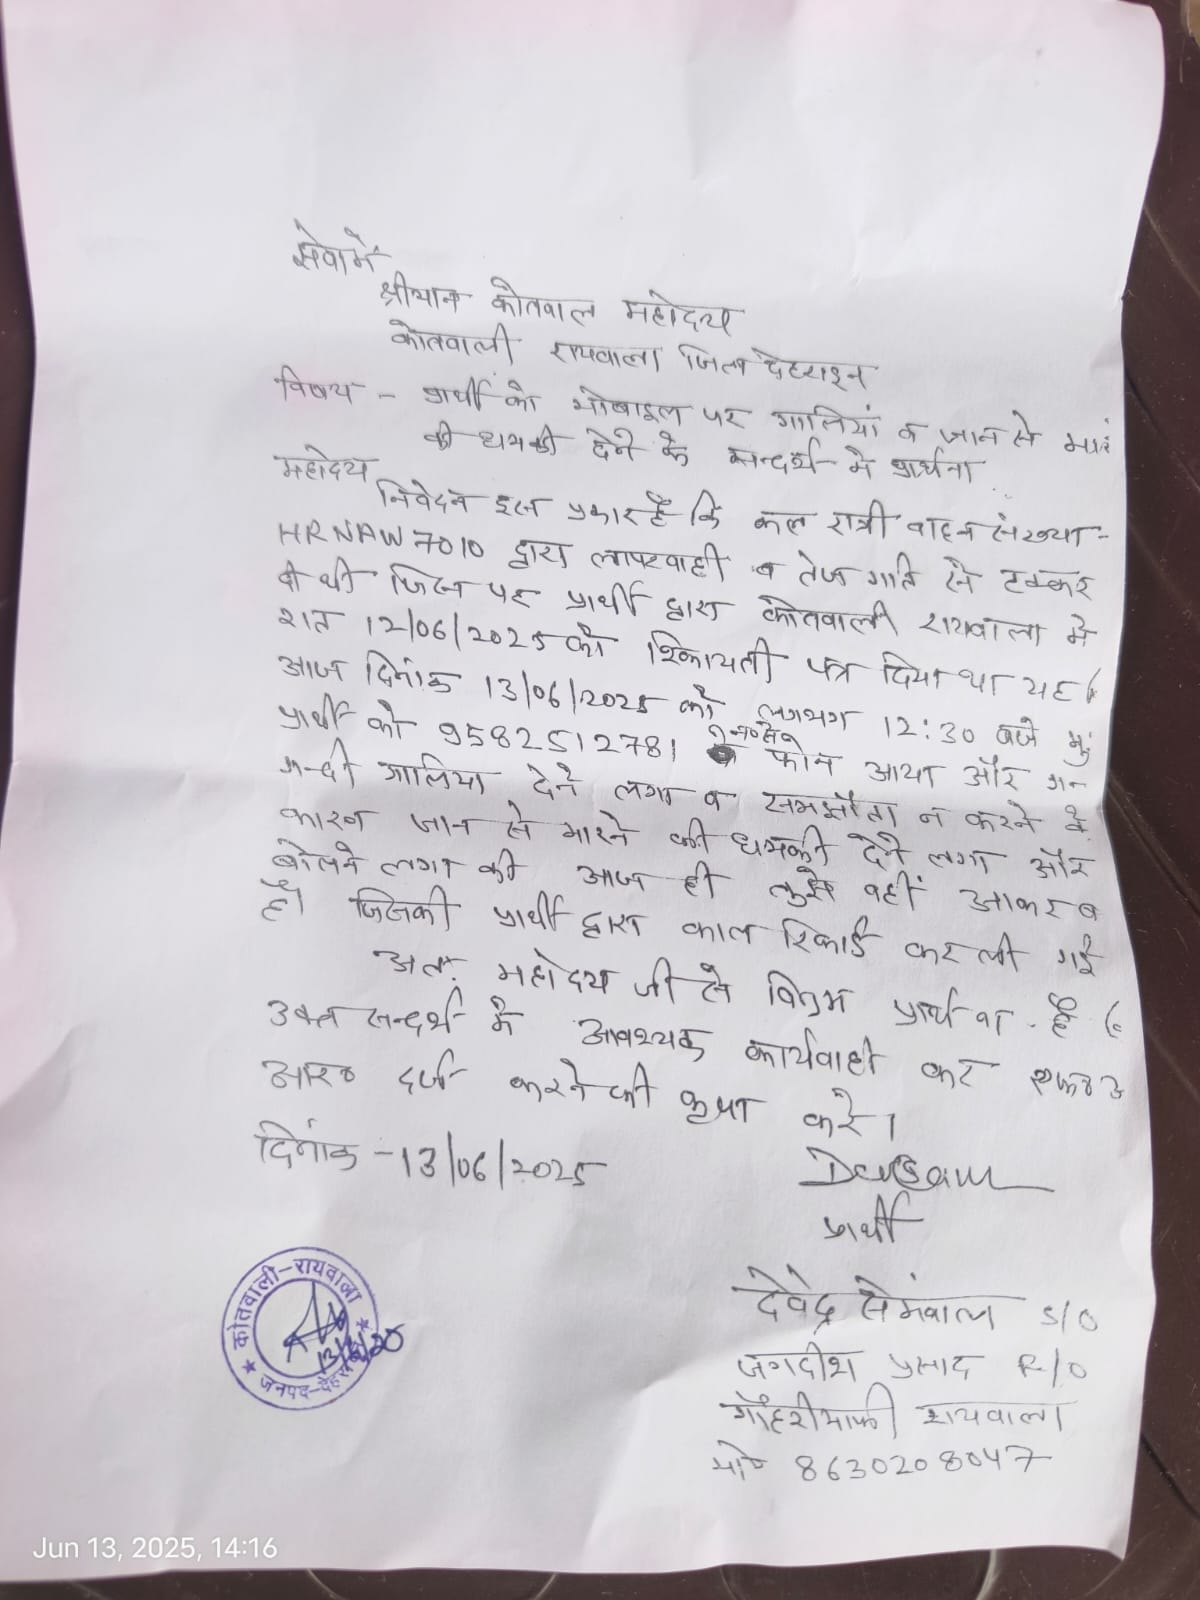 सेवामें
श्रीमान कोतवाल महोदय
कोतवाली रायवाला जिला देहरादून
विषय - प्रार्थी को मोबाइल पर गालियां व जान से मार
की धमकी देने के सन्दर्भ में प्रार्थना
महोदय
निवेदन इस प्रकार है कि कल रात्री वाहन संख्या -
HRNAW7010 द्वारा लापरवाही व तेज गति से टक्कर
दी थी जिस पर प्रार्थी द्वारा कोतवाली रायवाला में
रात 12/06/2025 को शिकायती पत्र दिया था यह
आज दिनांक 13/06/2025 को लगभग 12:30 बजे मु
प्रार्थी को 9582512781 फोन आया और गन
गन्दी गालिया देने लगा व समझौता न करने के
कारण जान से मारने की धमकी देने लगा और
बोलने लगा की आज ही तुझे वहीं आकर ब
है। जिसकी प्रार्थी द्वारा काल रिकार्ड कर ली गई
अतः महोदय जी से विनम्र प्रार्थना है
उक्त सन्दर्भ में आवश्यक कार्यवाही कर एफ०
आर० दर्ज करने की कृपा करे।
दिनांक - 13/06/2025
प्रार्थी
देवेंद्र सेमवाल S/O
जगदीश प्रसाद R/O
गौहरीमाफी रायवाला
मो० 8630208047
कोतवाली-रायवाला
जनपद-देहरादून
Jun 13, 2025, 14:16